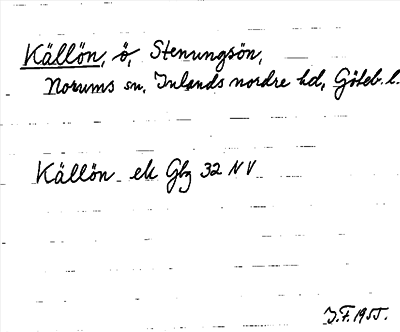 Källön, ö, Stenungsön,
Norums sn, Inlands nordre hd, Göteb. l.
Källön ek Gbg 32 NV
J.F. 1955.